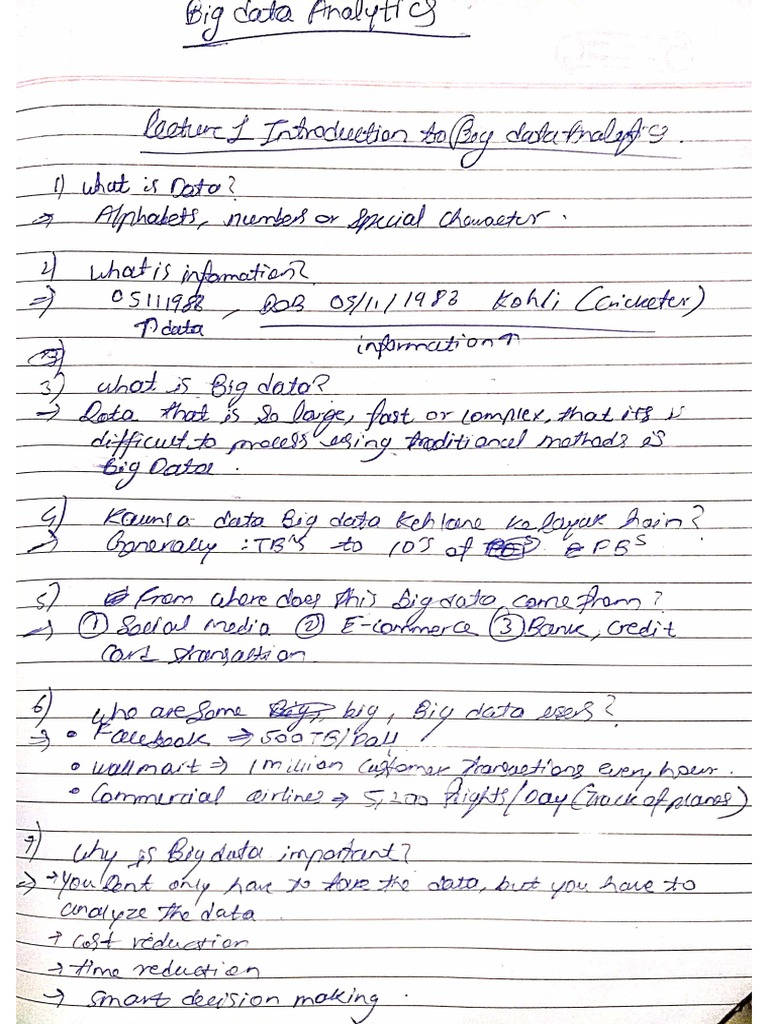 Big data Analytics
Lecture 1 Introduction to Big data Analytics.
1) What is Data?
⇒ Alphabets, numbers or special character.
2) What is infomation?
⇒ 05111988, DOB 05/11/1988 Kohli (Cricketer)
↑ data
information ↑
3) What is Big data?
→ Data that is so large, fast or complex, that its is
difficult to process using traditional methods is
Big Data.
4) Kaunsa data Big data Kehlane ke layak hain?
→ Generally : TB's to 10's of PB's
5) From where does this Big data, come from?
→ ① Social media ② E-commerce ③ Bank, credit
card transaction.
6) who are some big, Big data users?
⇒ • Facebook ⇒ 500TB/Day
• Wallmart ⇒ 1 million Customer transactions every hour.
• Commercial airlines → 5,200 flights/Day (Track of planes)
7) Why is Big data important?
⇒ → You Dont only have to have the data, but you have to
analyze the data
→ cost reduction
→ time reduction
→ smart decision making.